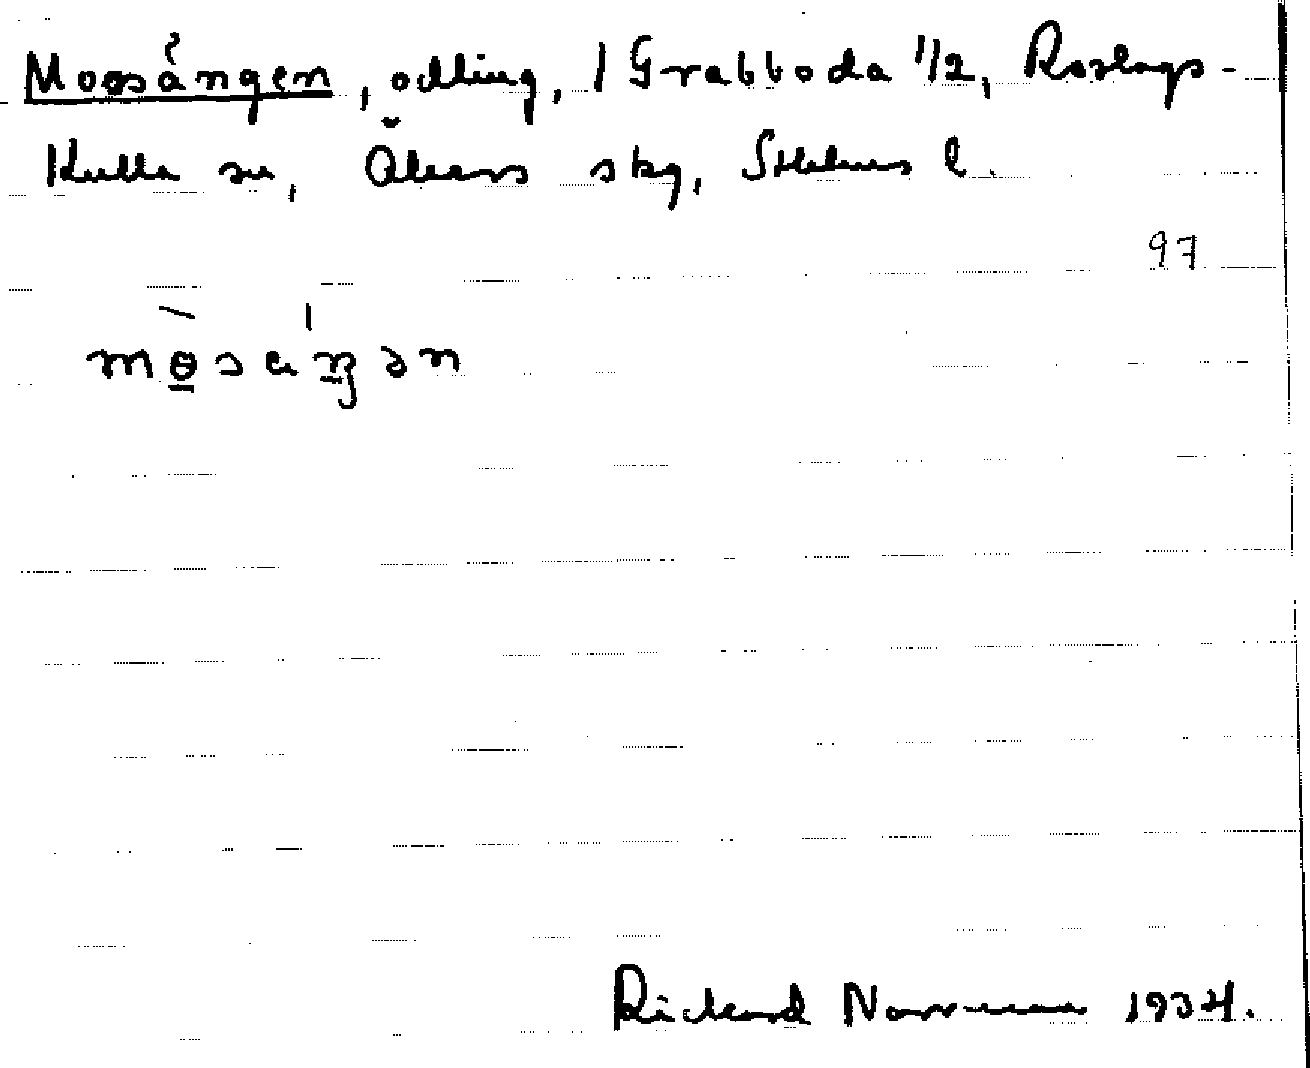 Moosängen, odling, / Grabboda 1/2, Roslags-
Kulla sn, Åkers skg, Sthlms l.
97
mɵsäŋən
Rickard Norrman 1934.